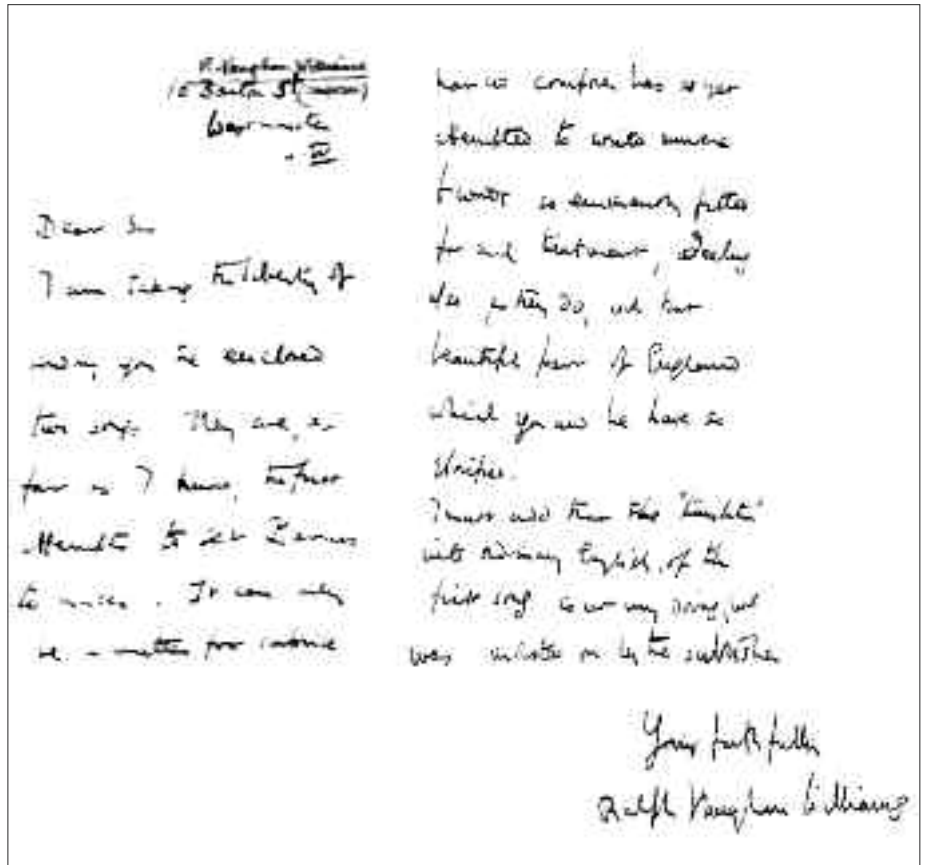 R. Vaughan Williams
10 Barton St
Westminster
Dear Sir
I am taking the liberty of
sending you the enclosed
two songs. They are, as
far as I know, the first
attempts to set Barnes
to music. It can only
be a matter for surprise
composer has as yet
attempted to write music
to words so eminently fitted
for such treatment, dealing
also, as they do, with that
beautiful part of England
which you and he have so
I must add that the "translation"
into ordinary English, of the
first song is not my doing, but
was insisted on by the publisher
Yours faithfully
Ralph Vaughan Williams